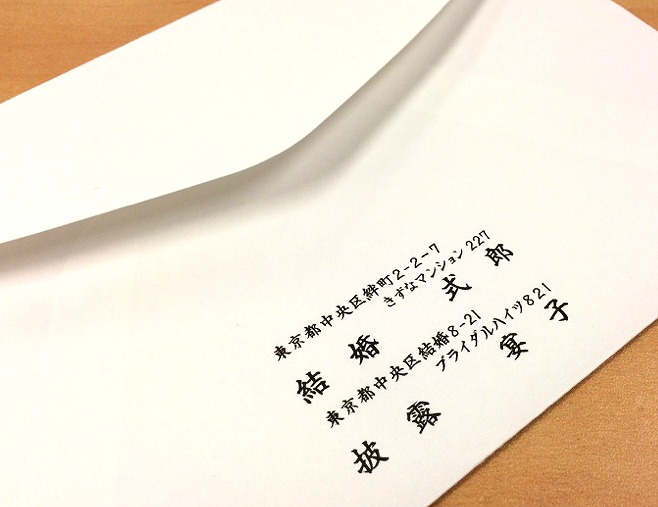 東京都中央区絆町2-2-7
きずなマンション 227
結婚 式郎
東京都中央区結婚8-21
ブライダルハイツ821
披露 宴子